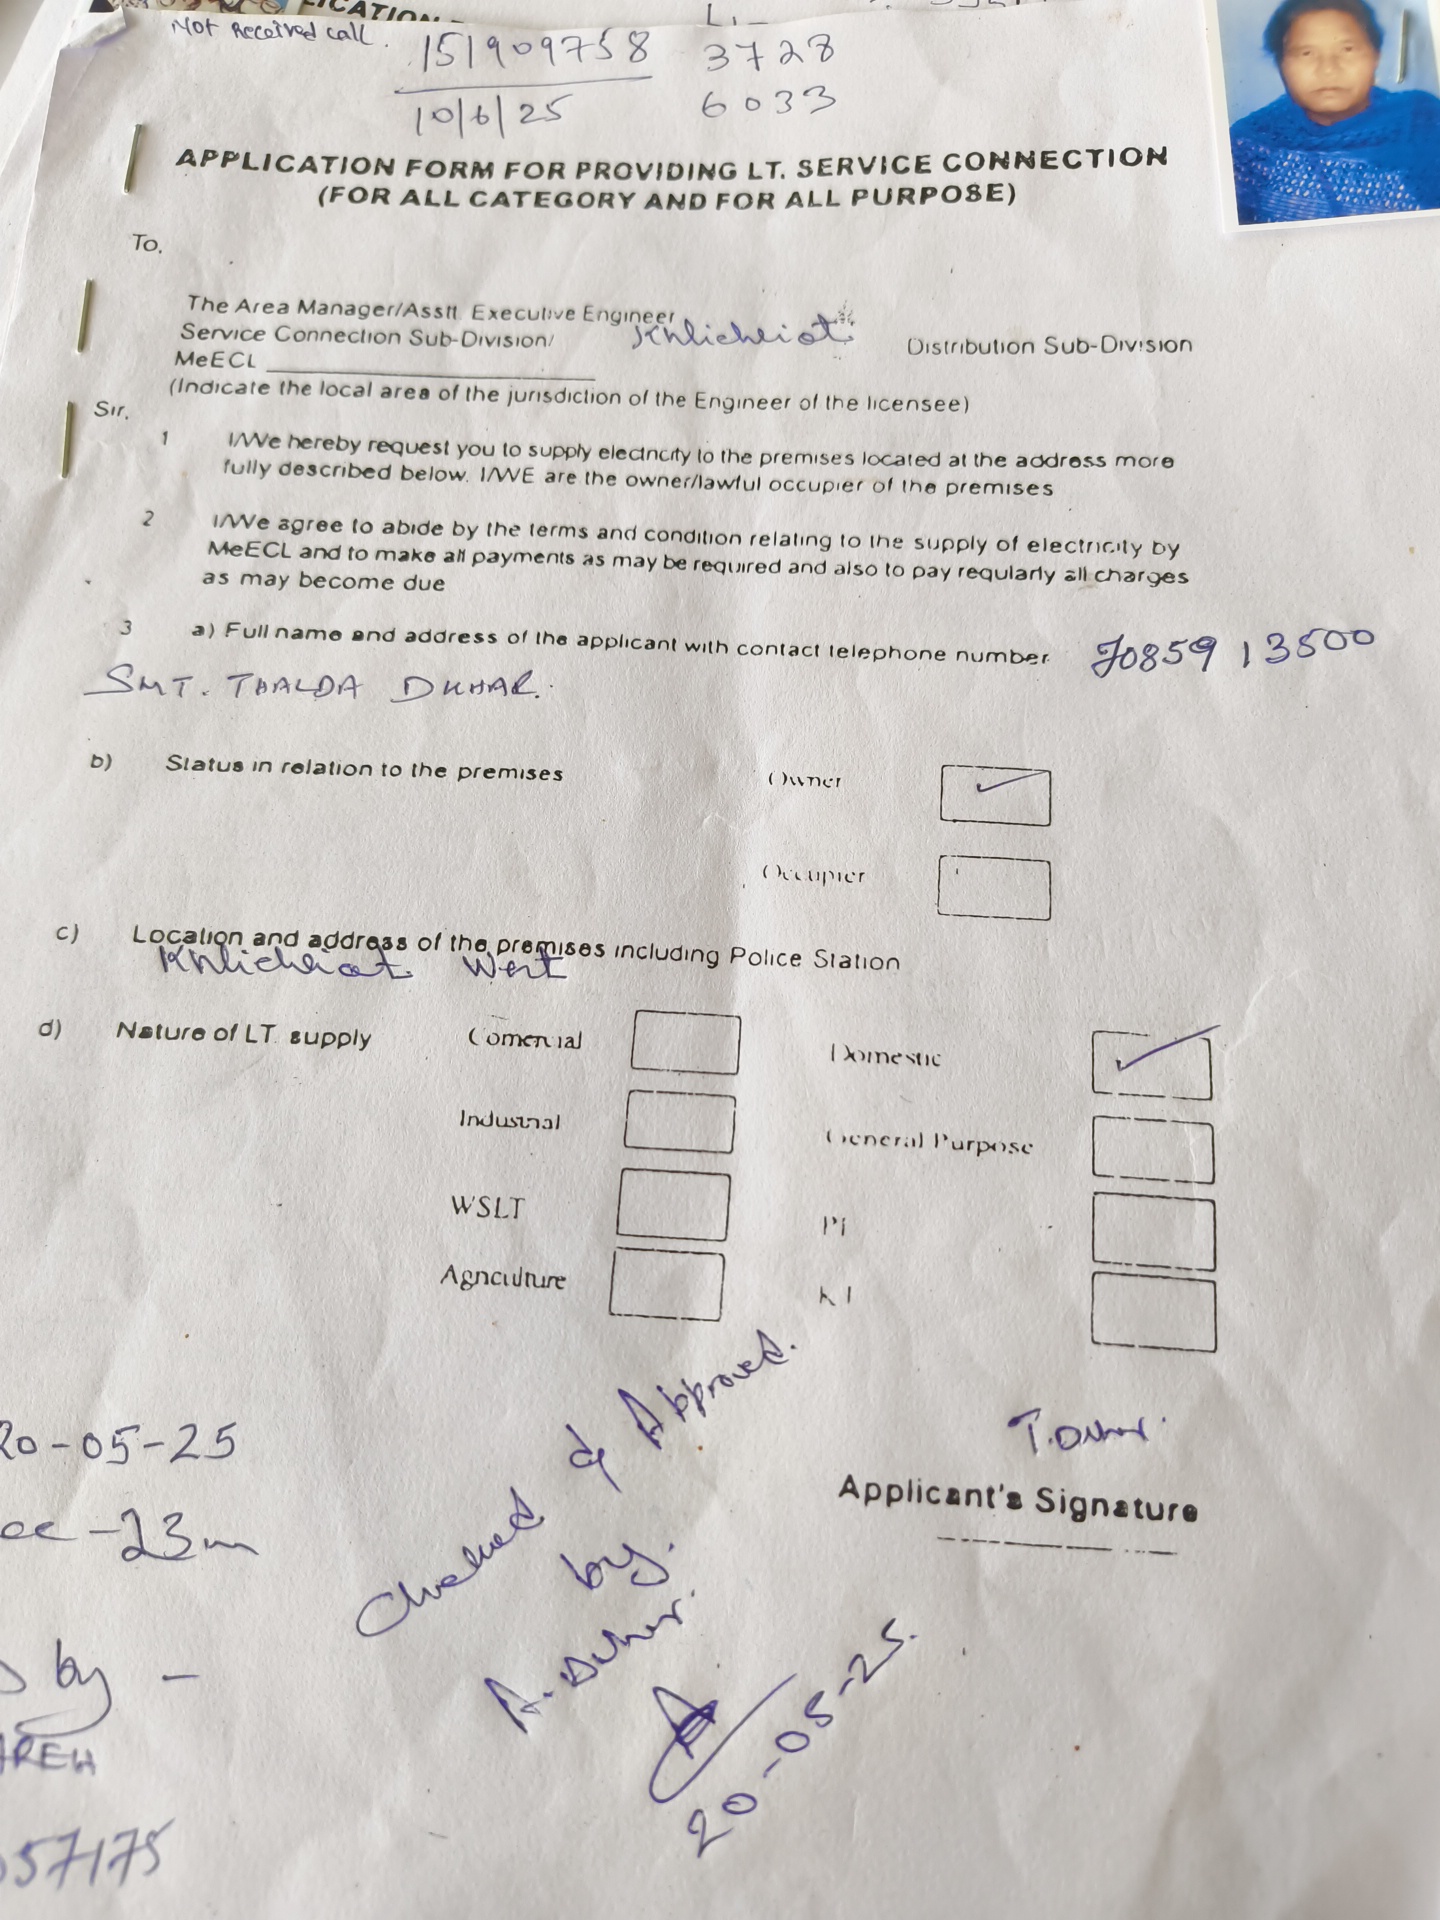 LICATION
Not Received call.
151909758 3728
10/6/25 6033
APPLICATION FORM FOR PROVIDING LT. SERVICE CONNECTION
(FOR ALL CATEGORY AND FOR ALL PURPOSE)
To,
The Area Manager/Asstt. Executive Engineer
Service Connection Sub-Division/ Khliehriat Distribution Sub-Division
MeECL
(Indicate the local area of the jurisdiction of the Engineer of the licensee)
Sir,
1 I/We hereby request you to supply electricity to the premises located at the address more
fully described below. I/WE are the owner/lawful occupier of the premises
2 I/We agree to abide by the terms and condition relating to the supply of electricity by
MeECL and to make all payments as may be required and also to pay regularly all charges
as may become due
3 a) Full name and address of the applicant with contact telephone number 7085913500
SMT. THALDA DKHAR.
b) Status in relation to the premises Owner
Occupier
c) Location and address of the premises including Police Station
Khliehriat West
d) Nature of LT. supply Comercial Domestic
Industrial General Purpose
WSLT PL
Agriculture KJ
Checked & Approved.
by.
A. Dkhar.
20-05-25.
T. Dkhar.
Applicant's Signature
20-05-25
ce -23m
by -
AREH
57175